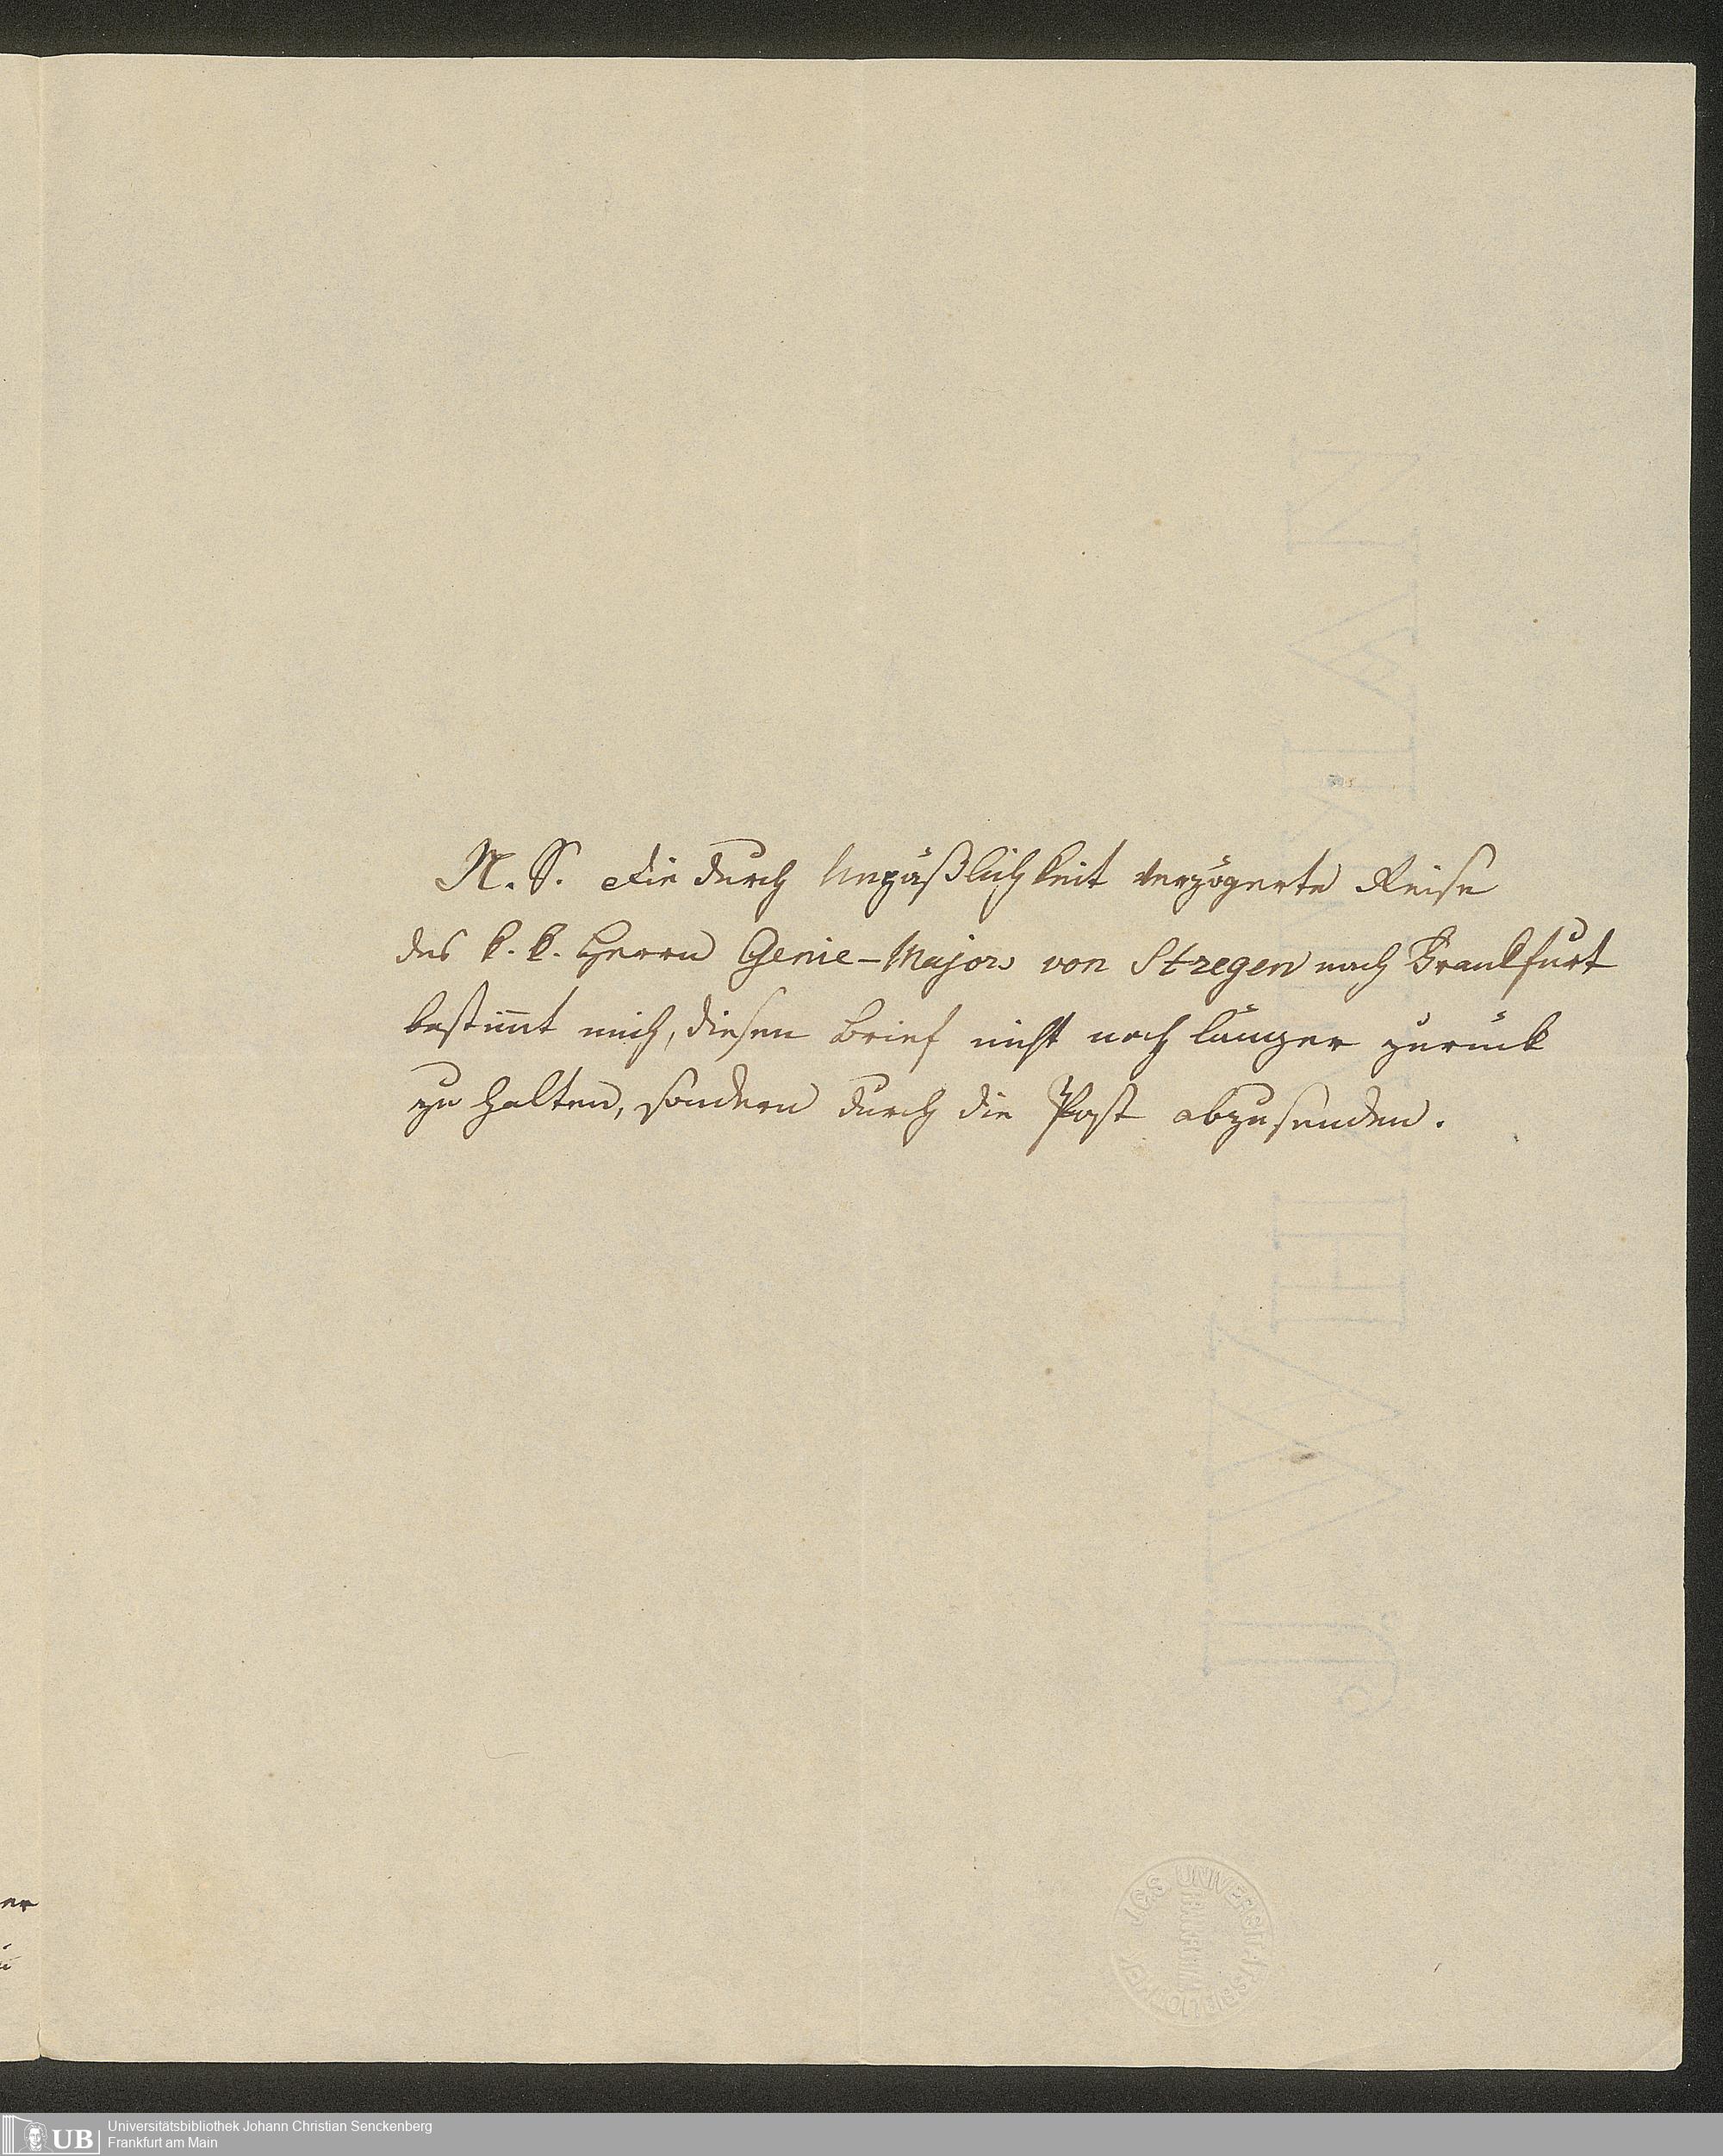 N. S. Die durch Unpäßlichkeit verzögerte Reise
des k. k. Herrn Genie-Majors von Stregen nach Frankfurt
bestim̄t mich, diesen Brief nicht noch länger zurück
zu halten, sondern durch die Post abzusenden.
er
J WHATMAN
JCS UNIVERSITÄTSBIBLIOTHEK
FRANKFURT/MAIN
UB
Universitätsbibliothek Johann Christian Senckenberg
Frankfurt am Main